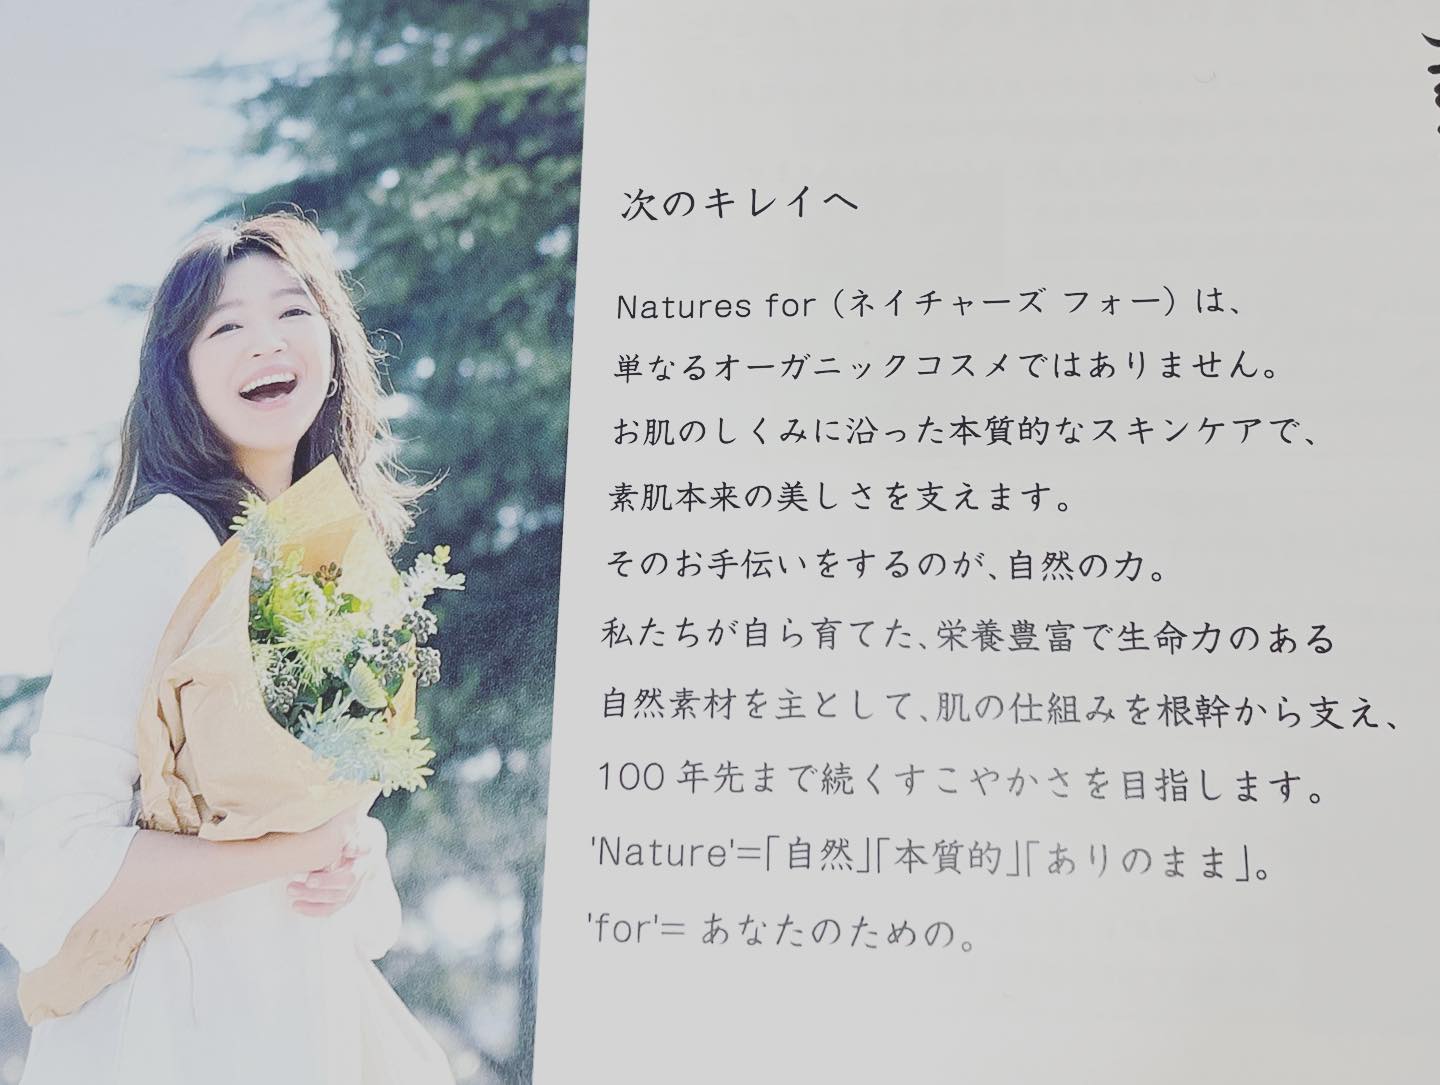 次のキレイへ
Natures for（ネイチャーズ フォー）は、
単なるオーガニックコスメではありません。
お肌のしくみに沿った本質的なスキンケアで、
素肌本来の美しさを支えます。
そのお手伝いをするのが、自然の力。
私たちが自ら育てた、栄養豊富で生命力のある
自然素材を主として、肌の仕組みを根幹から支え、
100年先まで続くすこやかさを目指します。
'Nature'=「自然」「本質的」「ありのまま」。
'for'= あなたのための。